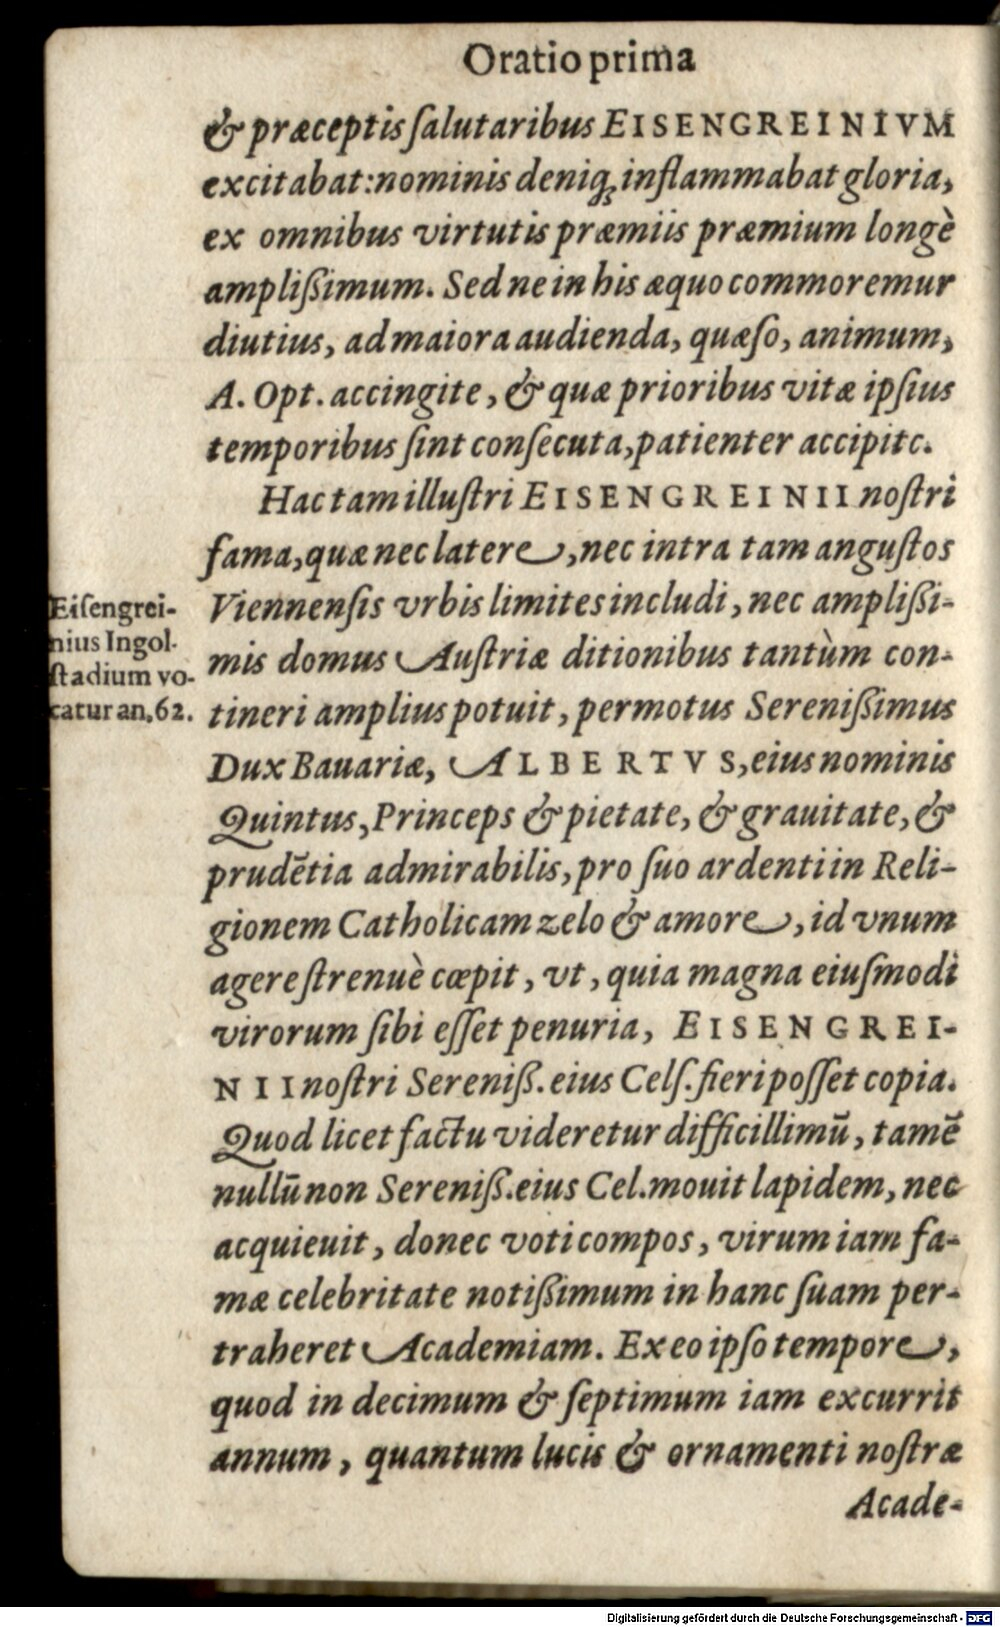 Oratio prima
& præceptis ſalutaribus EISENGREINIVM
excitabat: nominis deniq; inflammabat gloria,
ex omnibus virtutis præmiis præmium longè
amplißimum. Sed ne in his æquo commoremur
diutius, ad maiora audienda, quæſo, animum,
A. Opt. accingite, & quæ prioribus vitæ ipſius
temporibus ſint conſecuta, patienter accipite.
Hac tam illuſtri EISENGREINII noſtri
fama, quæ nec latere, nec intra tam anguſtos
Viennenſis vrbis limites includi, nec amplißi-
mis domus Auſtriæ ditionibus tantùm con-
tineri amplius potuit, permotus Sereniſſimus
Dux Bauariæ, ALBERTVS, eius nominis
Quintus, Princeps & pietate, & grauitate, &
prudētia admirabilis, pro ſuo ardenti in Reli-
gionem Catholicam zelo & amore, id vnum
agere ſtrenuè cœpit, vt, quia magna eiuſmodi
virorum ſibi eſſet penuria, EISENGREI-
NII noſtri Sereniß. eius Celſ. fieri poſſet copia.
Quod licet factu videretur difficillimū, tamē
nullū non Sereniß. eius Cel. mouit lapidem, nec
acquieuit, donec voti compos, virum iam fa-
mæ celebritate notißimum in hanc ſuam per-
traheret Academiam. Ex eo ipſo tempore,
quod in decimum & ſeptimum iam excurrit
annum, quantum lucis & ornamenti noſtræ
Acade-
Eiſengrei-
nius Ingol-
ſtadium vo-
catur an. 62.
Digitalisierung gefördert durch die Deutsche Forschungsgemeinschaft - DFG